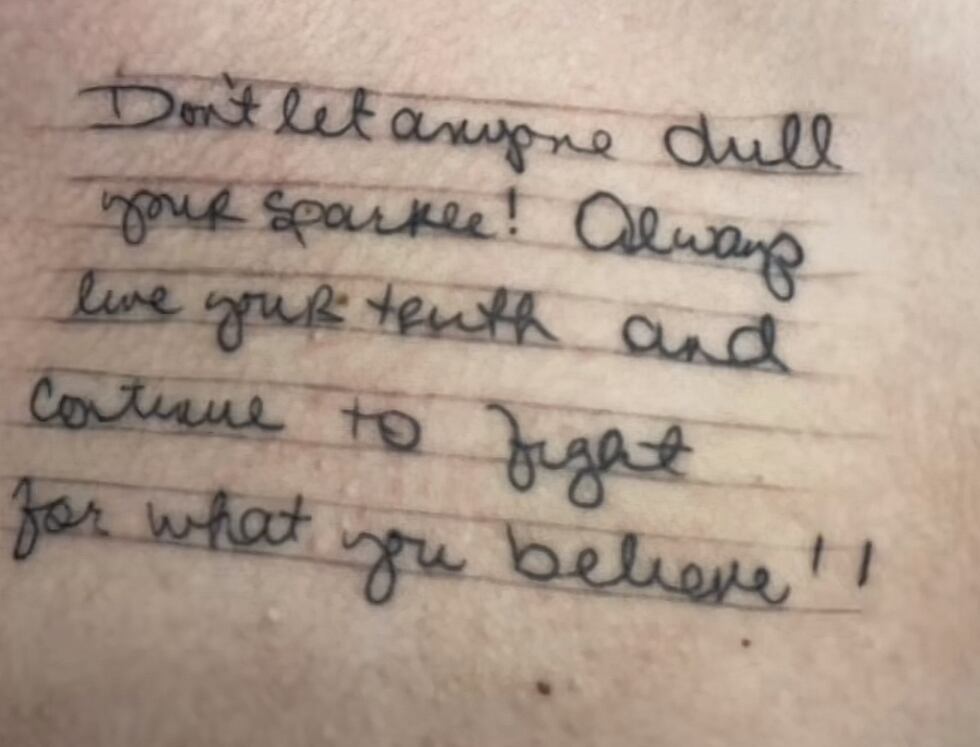 Don't let anyone dull
your sparkle! Always
live your truth and
continue to fight
for what you believe!!